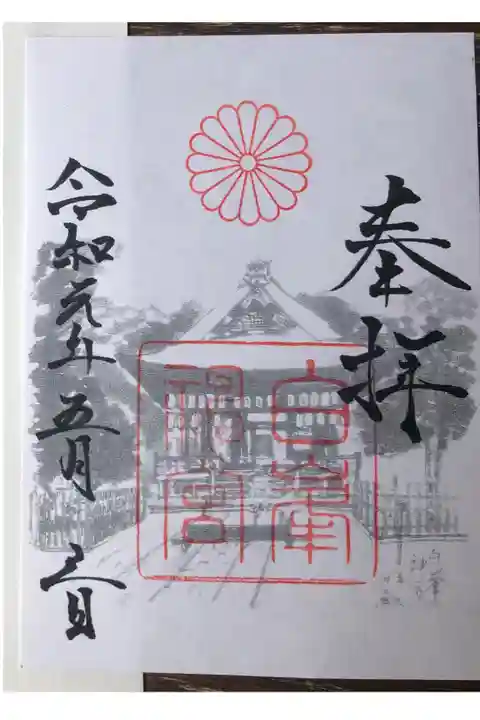 奉拝
白峯
神宮
令和元年五月